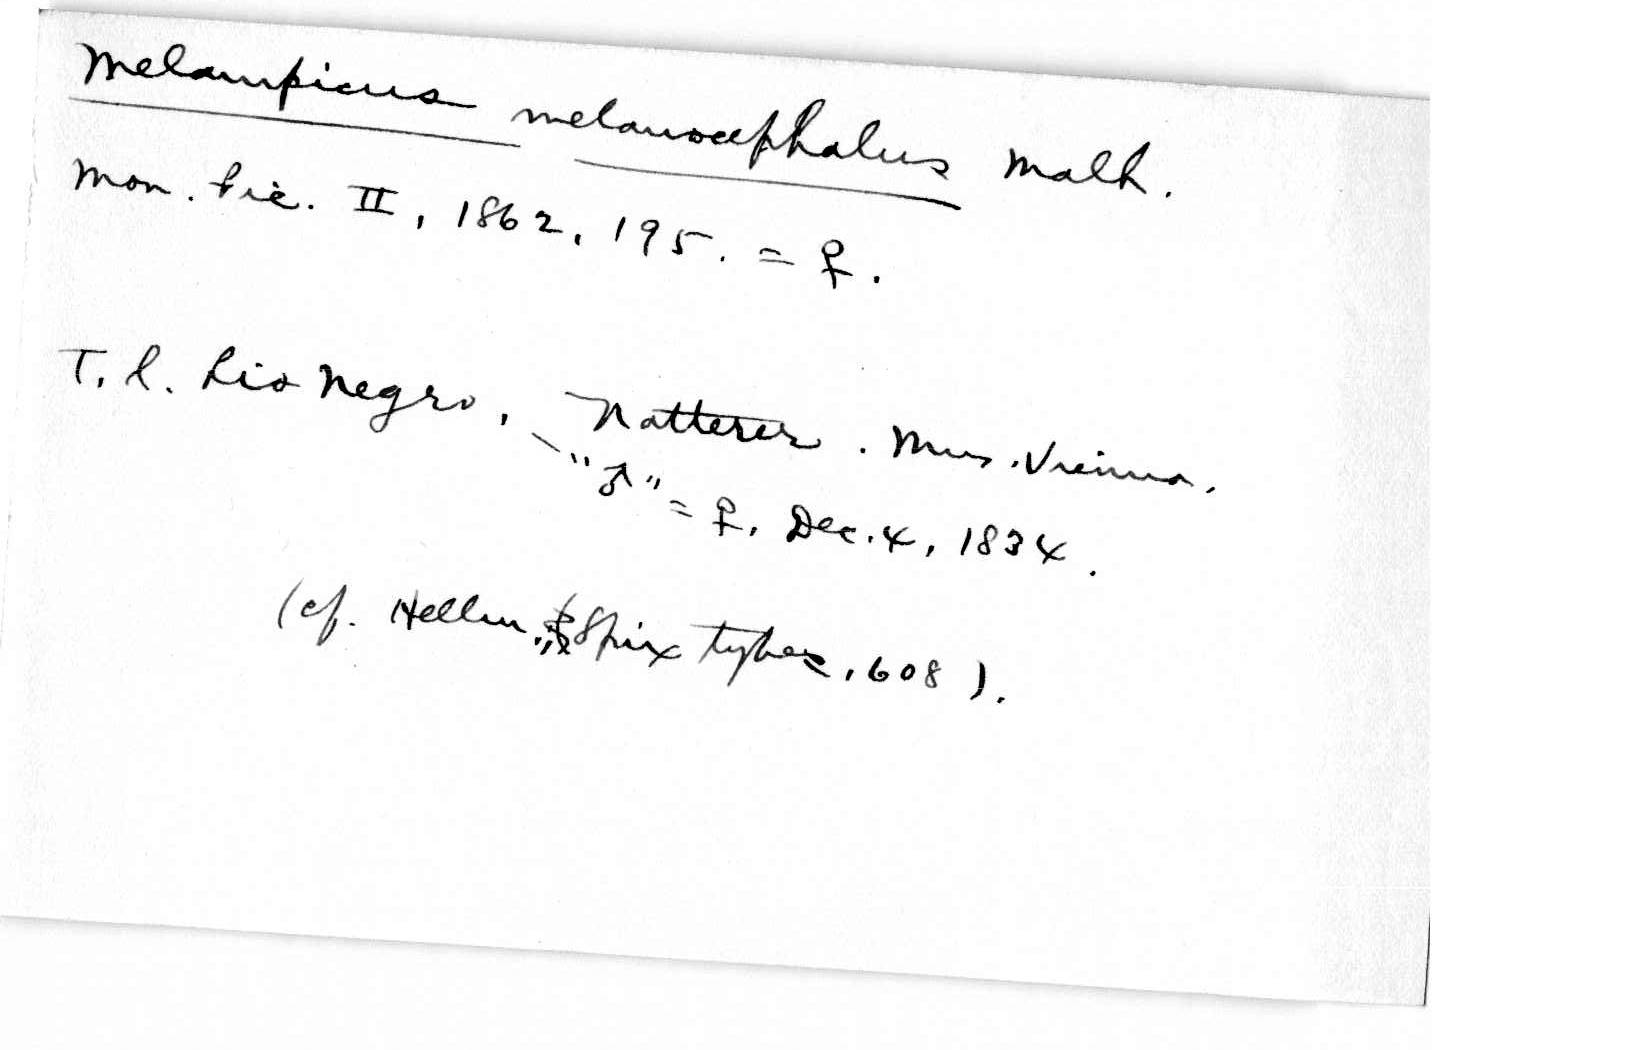 Melampicus melanocephalus Malh.
Mon. Pic. II, 1862, 195. = ♀.
T. l. Rio Negro, Natterer. Mus. Vienna,
"♂" = ♀, Dec. 4, 1834.
(cf. Hellm., Spix types, 608).